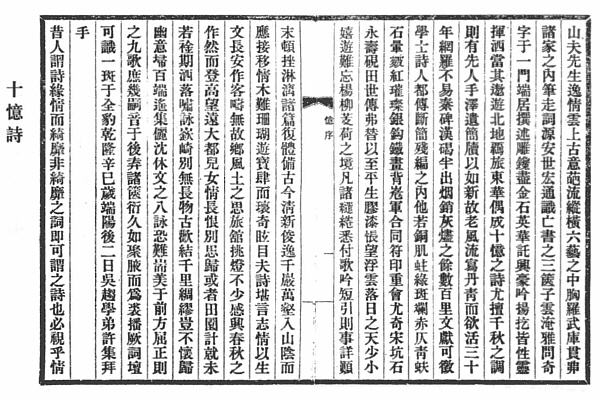 山夫先生逸情雲上古意葩流縱橫六藝之中胸羅武庫貫弗
諸家之內筆走詞源安世宏通識亡書之三篋子雲淹雅問奇
字于一門端居撰述雕鎪盡金石英華託興豪吟揚扢皆性靈
揮洒當其遨遊北地羈旅東華偶成十憶之詩尤擅千秋之調
則有先人手澤遺箴牘以如新故老風流寫丹靑而欲活三十
年網羅不易秦碑漢碣半出烟銷灰燼之餘數百里文獻可徵
學士詩人都傳斷簡殘編之內他若銅肌蛀綠斑斕赤仄靑蚨
石暈皴紅璀璨銀鈎鐵畫背嵬軍合同符印重會尤奇宋坑石
永壽硯田世傳弗替以至平生膠漆悵望浮雲落日之天少小
嬉遊難忘楊柳芰荷之境凡諸繾綣悉付歌吟短引則事詳顚
憶序
一
末頓挫淋漓諸篇復體備古今清新俊逸千巖萬壑入山陰而
應接移情木難珊瑚遊寶肆而瓌奇眩目夫詩堪言志情以生
文長安作客疇無故鄉風土之思旅舘挑燈不少感興春秋之
作然而登高望遠大都兒女情長恨別思歸或者田園計就未
若栓期洒落嘯詠嶔崎別無長物古歡結千里綢繆豈不懷歸
幽意埽百端遙集儷沈休文之八詠恐難耑美于前方屈正則
之九歌庶幾嗣音于後弆諸篋衍久如聚腋而爲裘播厥詞壇
可識一斑于全豹乾隆辛巳歲端陽後二日吳趨學弟許集拜
手
昔人謂詩緣情而綺靡非綺靡之詞即可謂之詩也必視乎情
十憶詩